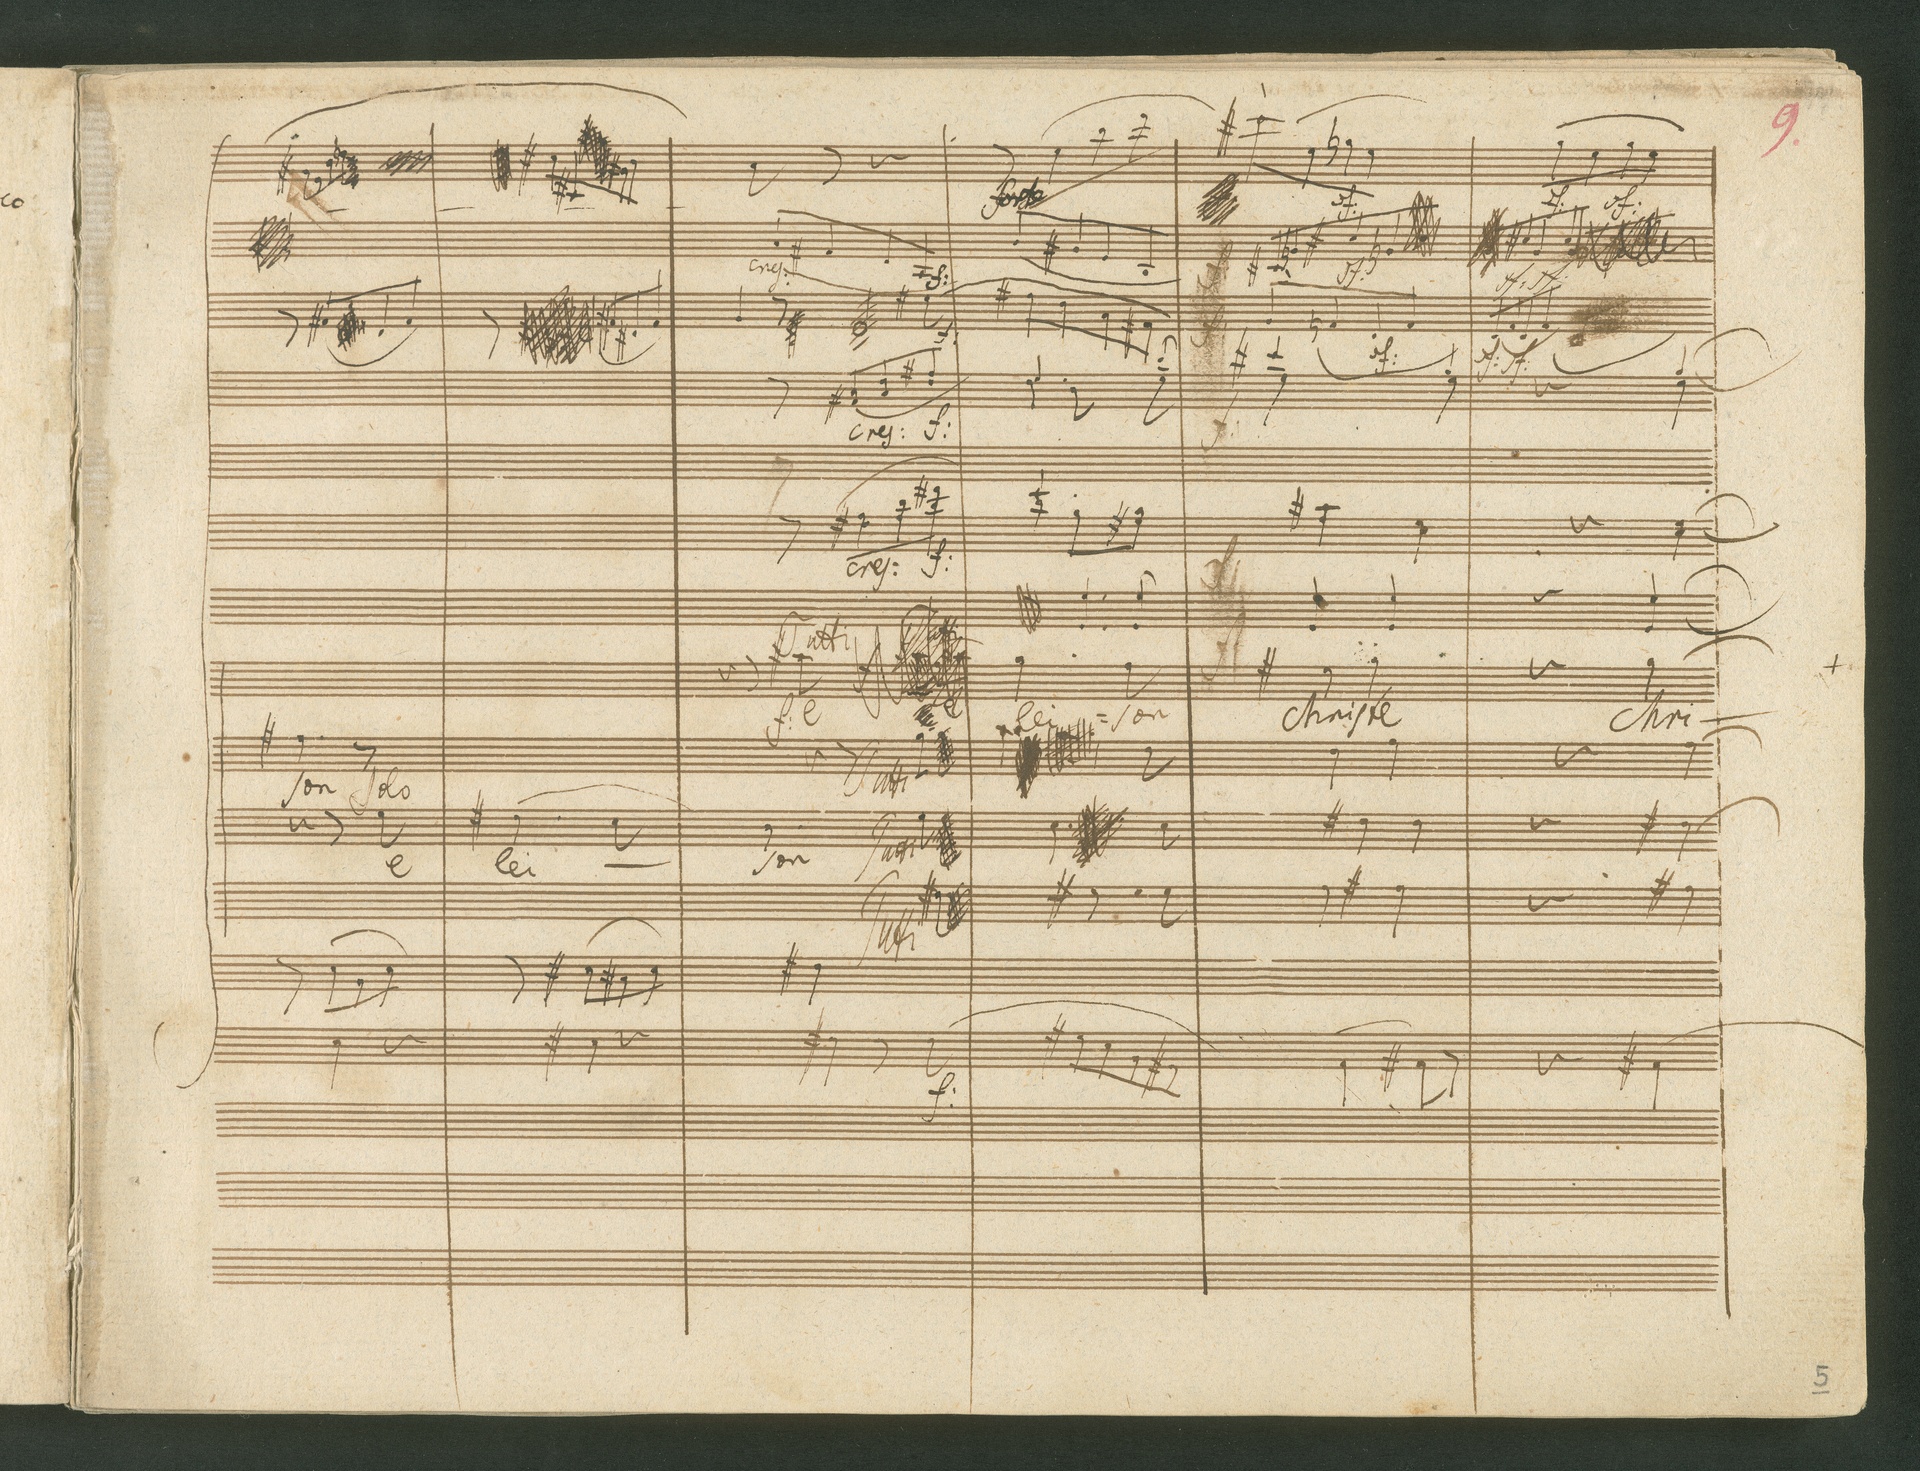 co
9.
forte
sf:
sf: sf:
cres: f:
sf:
sf: sf:
f:
sf:
sf: sf:
cres: f:
cres: f:
Tutti
f: e
e lei = son Christe Chri
Tutti
son Solo
Tutti
e lei son
Tutti
f:
5